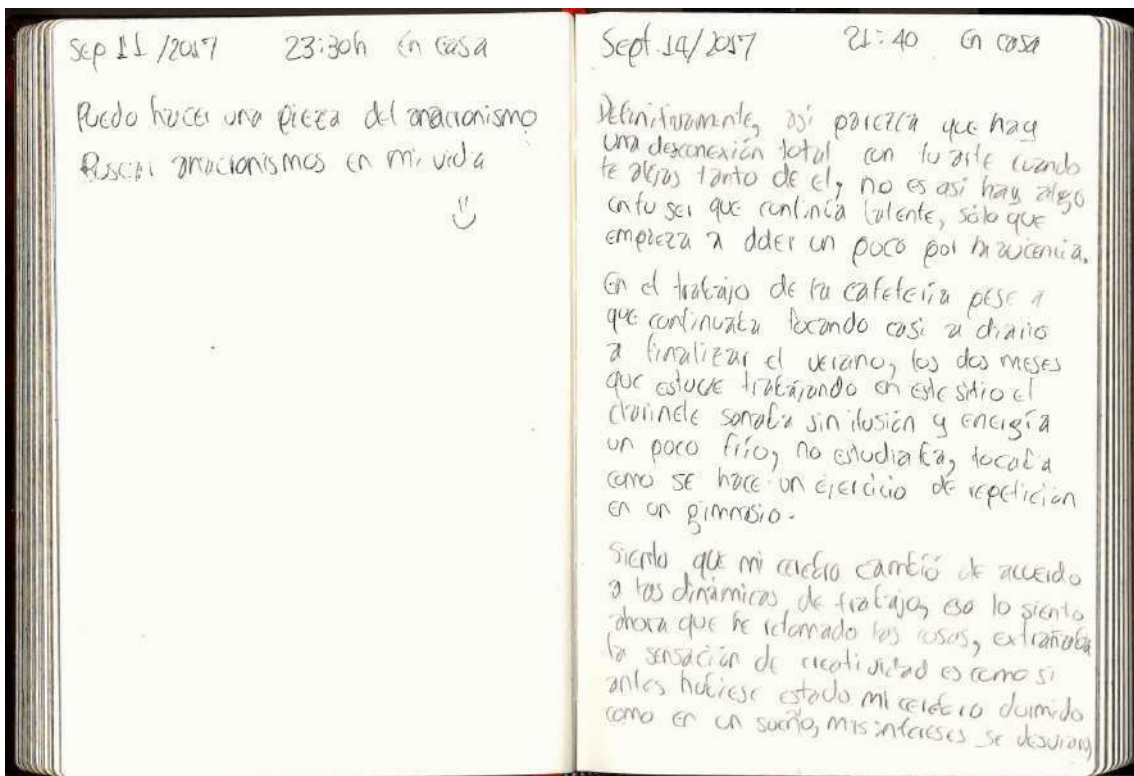 Sep 11 /2017 23:30h En casa
Puedo hacer una pieza del anacronismo
Buscar anacronismos en mi vida
Sept. 14/2017 21:40 En casa
Definitivamente, así parezca que hay
una desconexión total con tu arte cuando
te alejas tanto de el, no es así hay algo
en tu ser que continúa latente, sólo que
empieza a doler un poco por la ausencia.
En el trabajo de la cafetería pese a
que continuaba tocando casi a diario
a finalizar el verano, los dos meses
que estuve trabajando en este sitio el
clarinete sonaba sin ilusión y energía
un poco frío, no estudiaba, tocaba
como se hace un ejercicio de repetición
en un gimnasio.
Siento que mi cerebro cambió de acuerdo
a las dinámicas de trabajo, eso lo siento
ahora que he retomado las cosas, extrañaba
la sensación de creatividad es como si
antes hubiese estado mi cerebro dormido
como en un sueño, mis intereses se desviaron